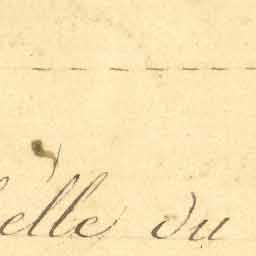 elle du